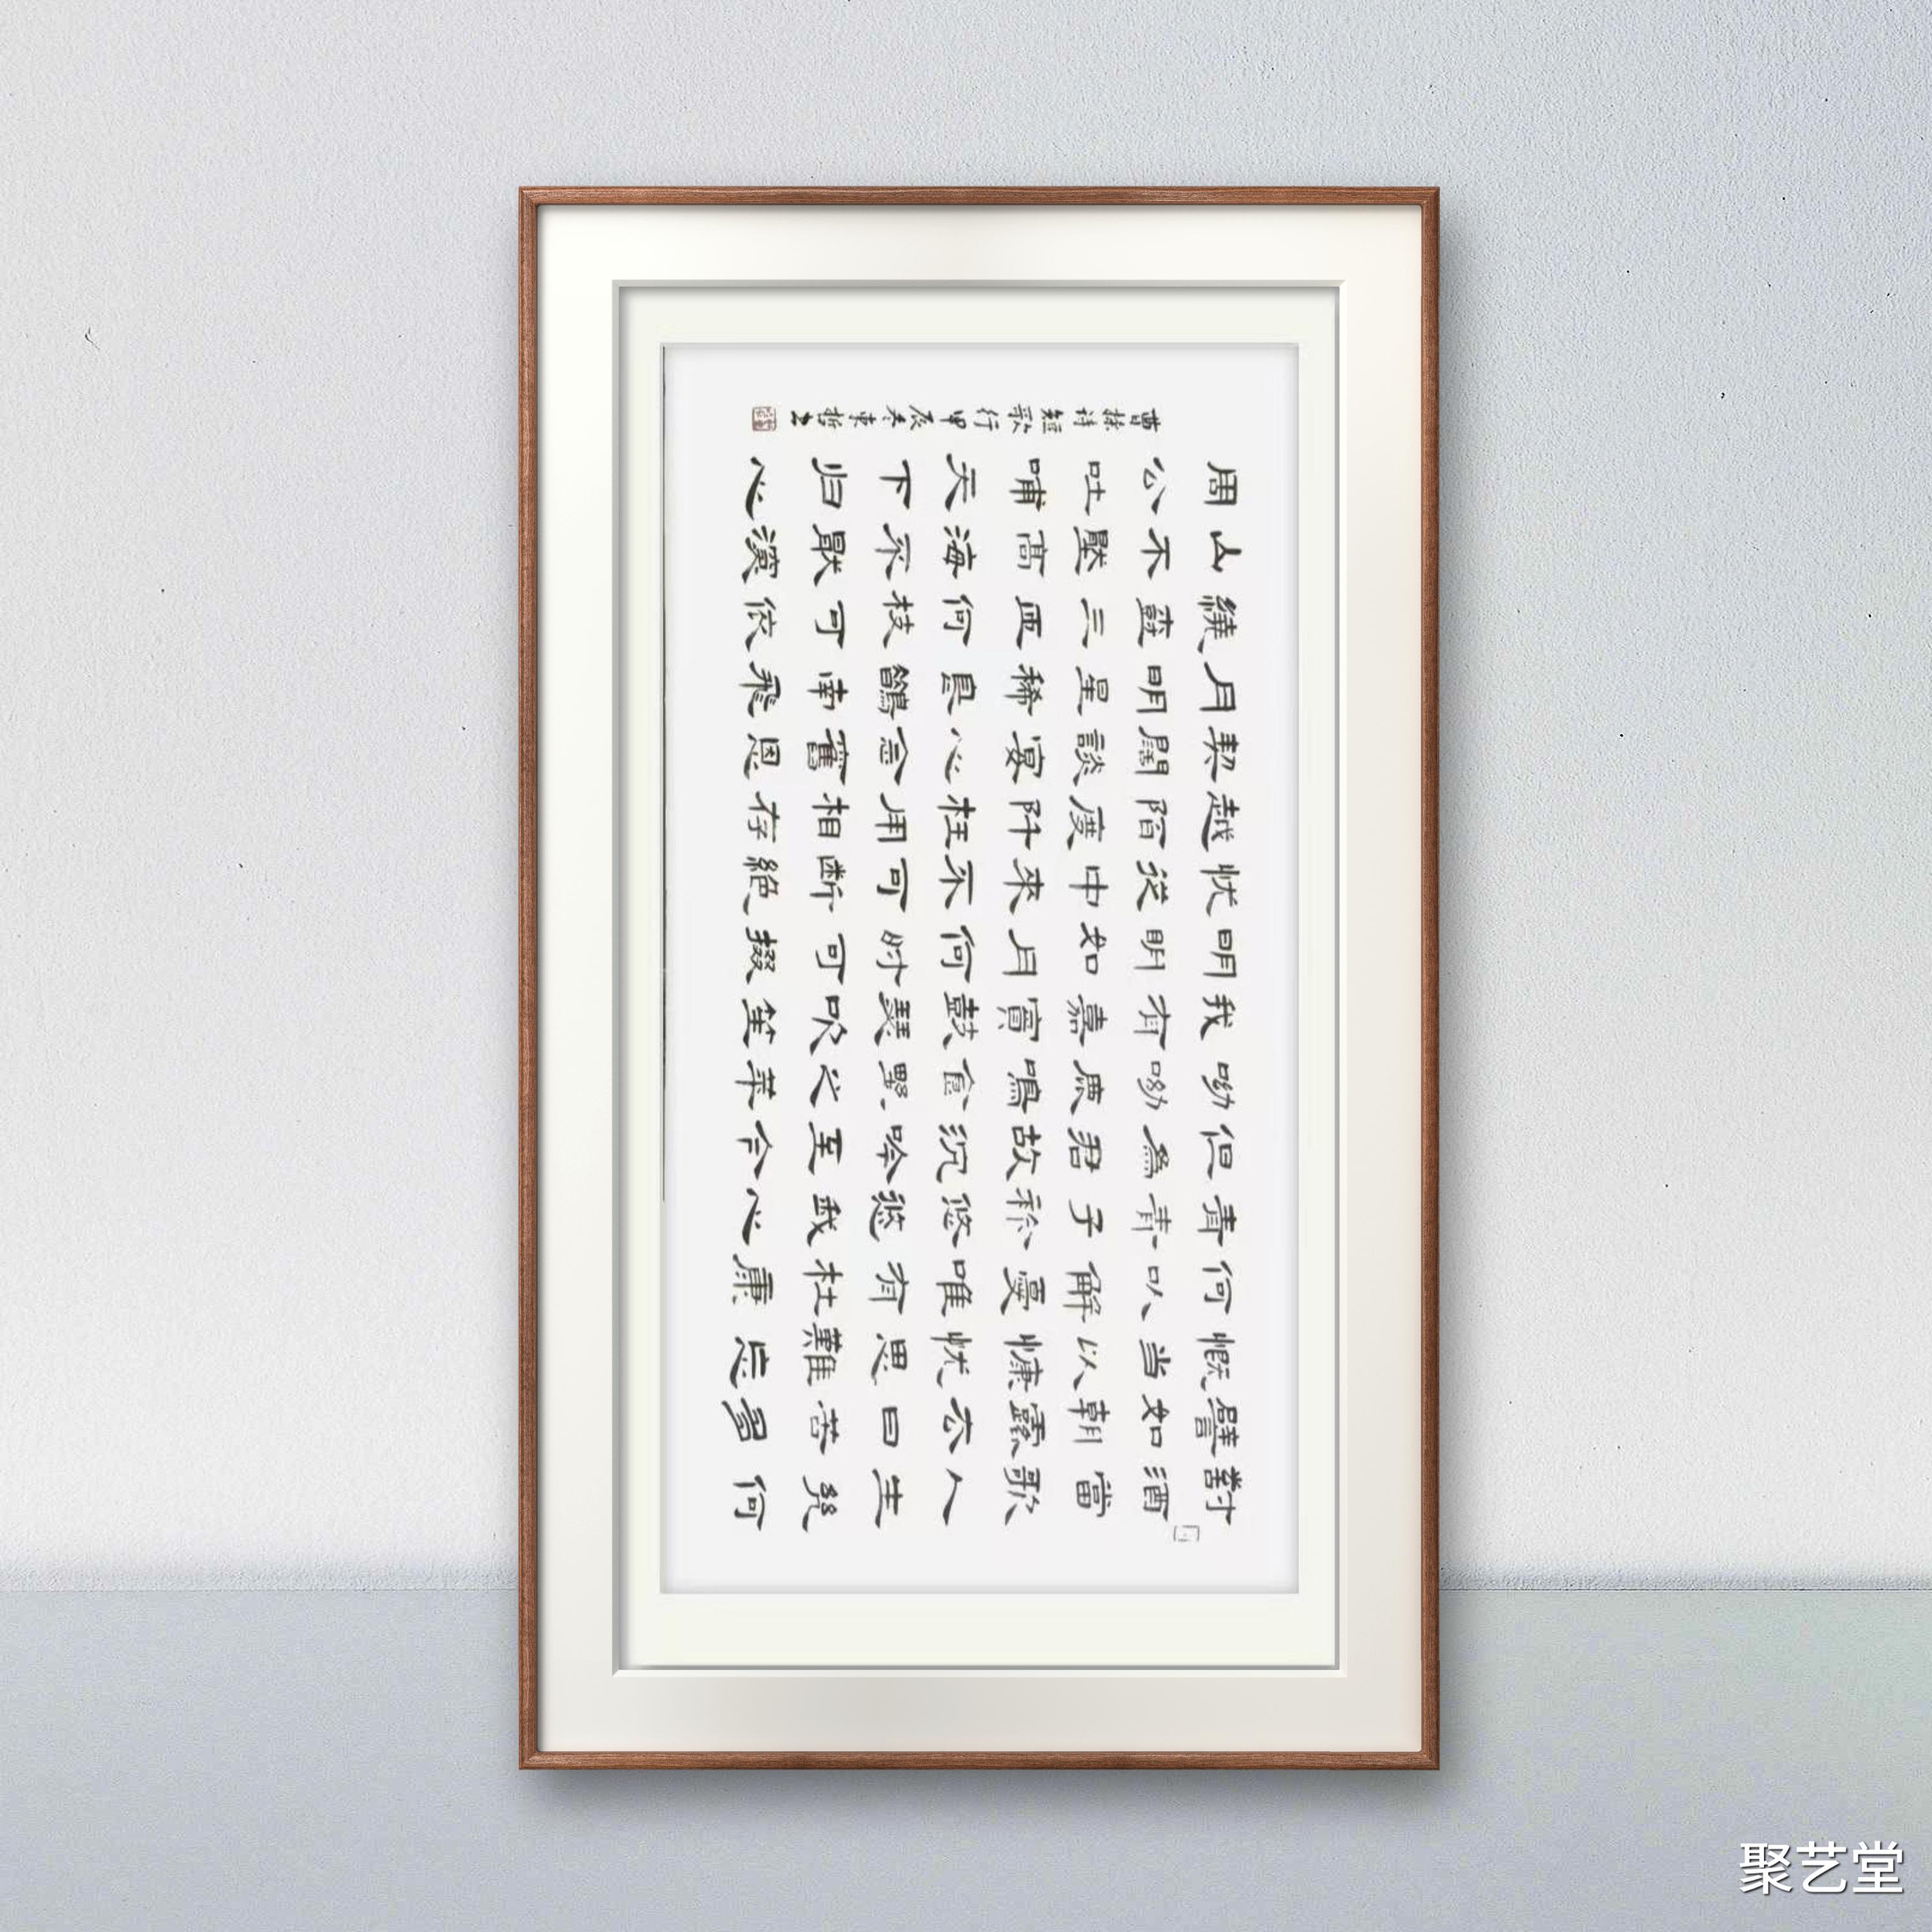 對酒當歌人生幾何
譬如朝露去日苦多
慨当以慷忧思難忘
何以解憂唯有杜康
青青子衿悠悠我心
但為君故沉吟至今
呦呦鹿鳴食野之苹
我有嘉賓鼓瑟吹笙
明明如月何时可掇
忧從中來不可斷絕
越陌度阡枉用相存
契闊談宴心念舊恩
月明星稀烏鵲南飛
繞樹三匝何枝可依
山不厭高海不厭深
周公吐哺天下归心
曹操诗短歌行甲辰冬東哲书
聚艺堂